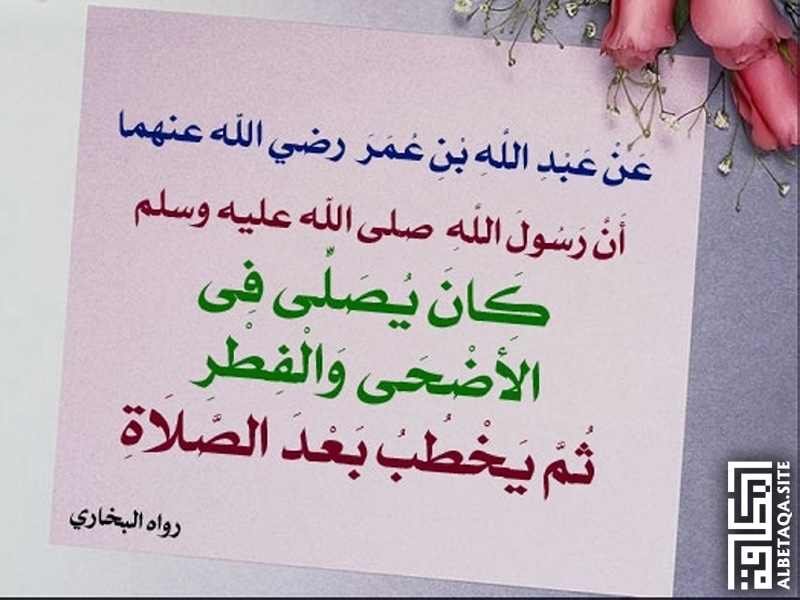 عَنْ عَبْدِ اللَّهِ بْنِ عُمَرَ رضي الله عنهما
أَنَّ رَسُولَ اللَّهِ صلى الله عليه وسلم
كَانَ يُصَلِّى فِى
الأَضْحَى وَالْفِطْرِ
ثُمَّ يَخْطُبُ بَعْدَ الصَّلَاةِ
رواه البخاري
البطاقة
ALBETAQA.SITE